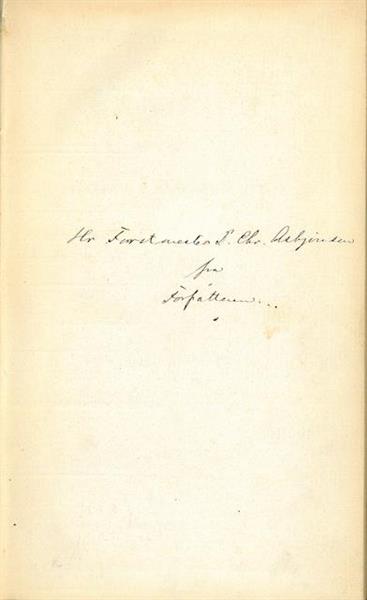 Hr Forstmester P. Chr. Asbjørnsen
fra
Forfatteren...